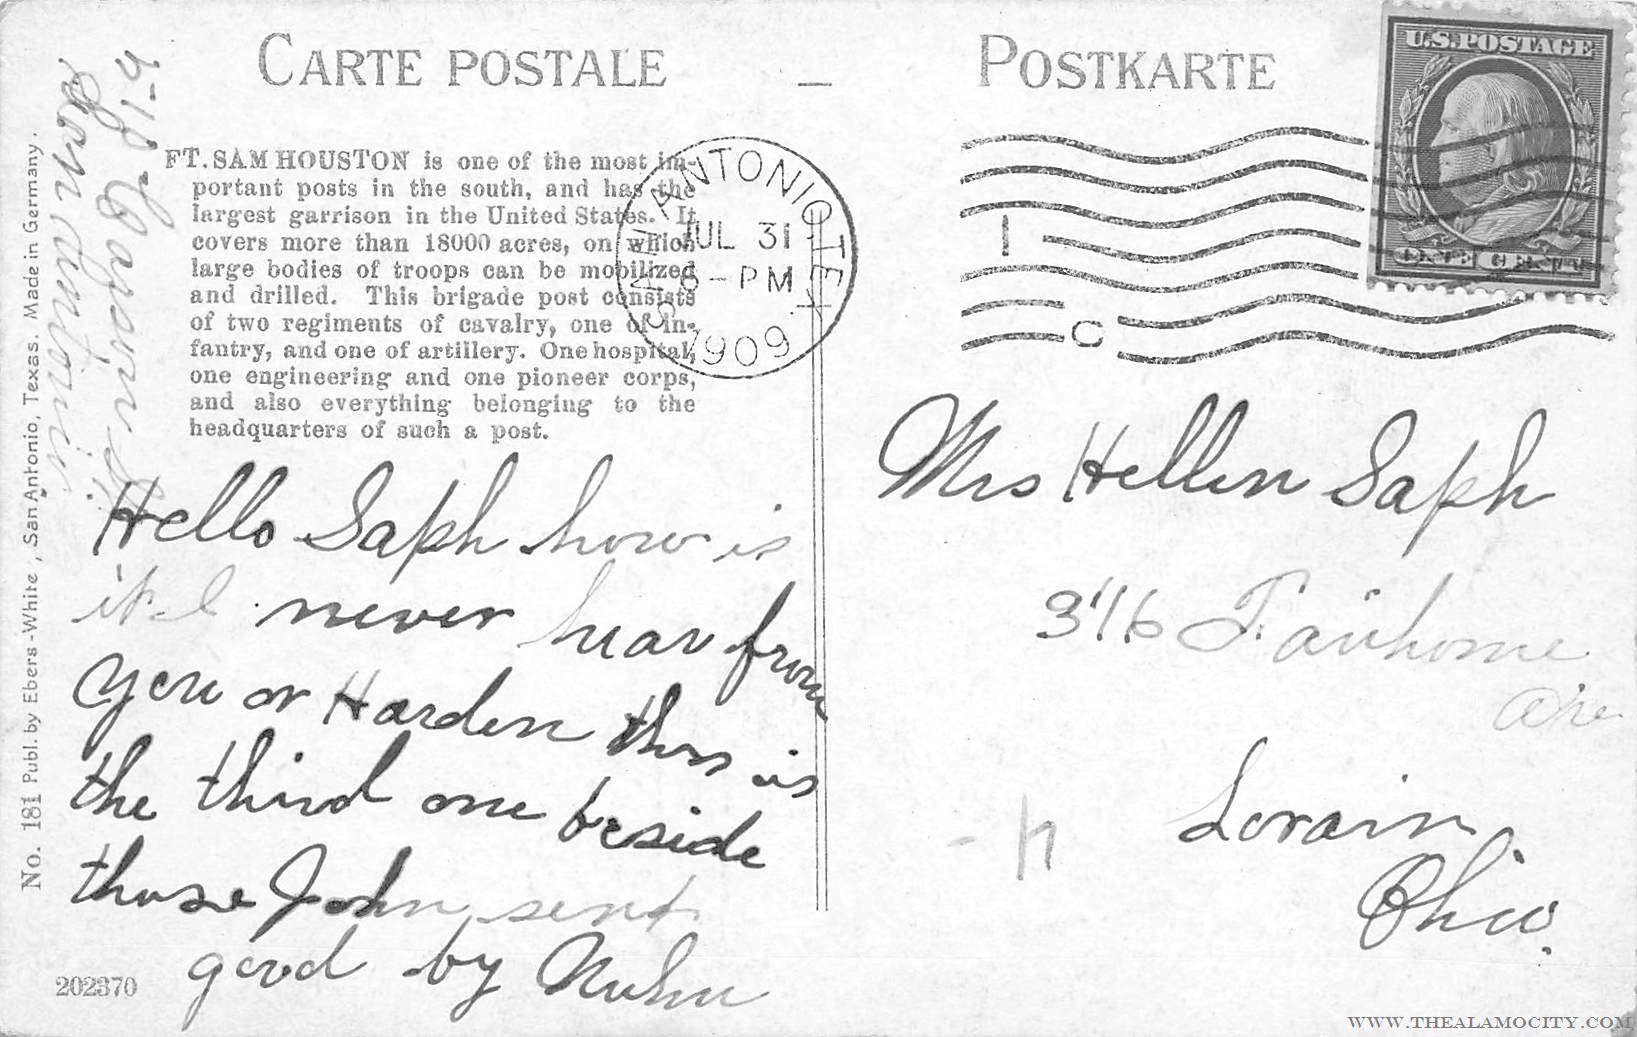 CARTE POSTALE — POSTKARTE
U.S. POSTAGE
ONE CENT
FT. SAM HOUSTON is one of the most im-
portant posts in the south, and has the
largest garrison in the United States. It
covers more than 18000 acres, on which
large bodies of troops can be mobilized
and drilled. This brigade post consists
of two regiments of cavalry, one of in-
fantry, and one of artillery. One hospital,
one engineering and one pioneer corps,
and also everything belonging to the
headquarters of such a post.
SAN ANTONIO, TEX.
JUL 31
6-PM
1909
1
C
San Antonio
No. 181 Publ. by Ebers-White, San Antonio, Texas. Made in Germany.
Hello Saph how is
it I never hear from
you or Harden this is
the third one beside
those John sent
good by
202370
Mrs Hellen Saph
316 Fairhome
Ave
Lorain
Ohio.
WWW.THEALAMOCITY.COM